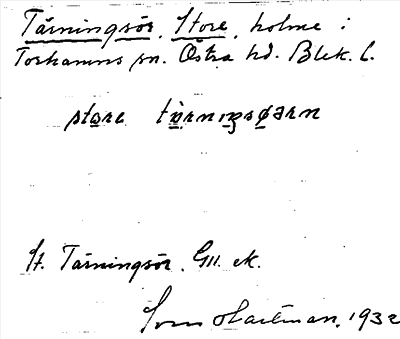 Tärningsör, Store, holme i
Torhamns sn. Östra hd. Blek. l.
store tærnıŋsøərn
St. Tärningsör. Gll. ek.
Hartman. 1932